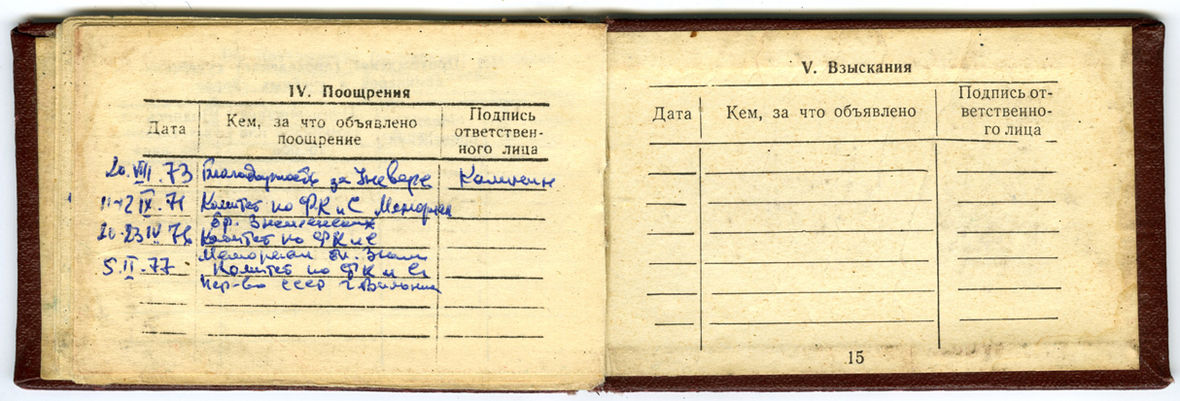 IV. Поощрения
Дата
Кем, за что объявлено
поощрение
Подпись
ответствен-
ного лица
20.VIII.73 Благодарность за Калинин
IX. Комитет по ФК и С Мемориал
бр. Знаменских
20-23 IV 76 Комитет по ФК и С
Мемориал бр. Знам
5.II.77 Комитет по ФК и С
Пер-во СССР г.
V. Взыскания
Дата
Кем, за что объявлено
Подпись от-
ветственно-
го лица
15